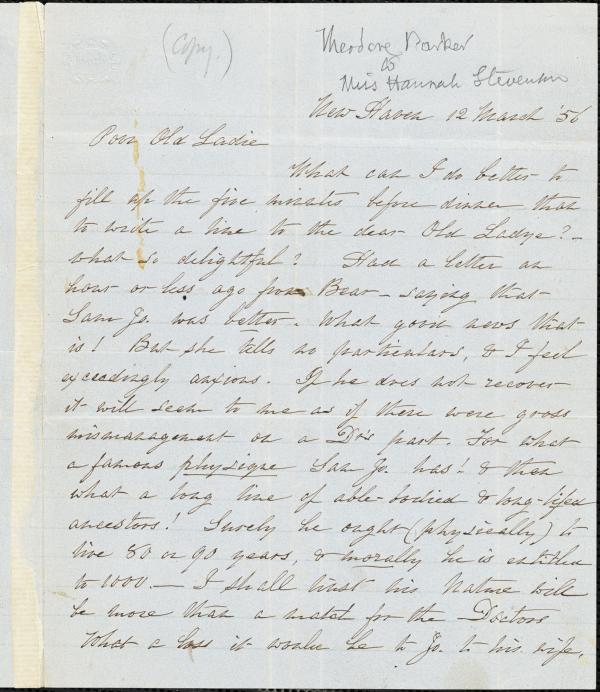 (Copy.)
Theodore Parker
to
Miss Hannah Stevenson
New Haven 12 March '56
Poor Old Ladie
What can I do better to
fill up the five minutes before dinner than
to write a line to the dear Old Ladye? –
what so delightful? Had a letter an
hour or less ago from Bear – saying that
Sam Jo. was better. What good news that
is! But she tells no particulars, & I feel
exceedingly anxious. If he does not recover
it will seem to me as if there were gross
mismanagement on a Dr's part. For what
a famous physique Sam Jo. has! & then
what a long line of able-bodied & long-lifed
ancestors! Surely he ought (physically) to
live 80 or 90 years, & morally he is entitled
to 1000. — I shall trust his Nature will
be more than a match for the Doctors
What a loss it would be to Jo. to his wife,